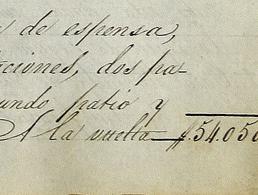 de espensa,
ciones, dos pa
undo patio y
A la vuelta $54.050